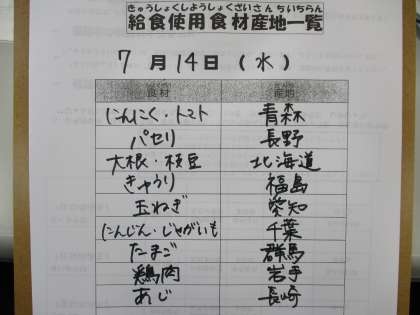 きゅうしょくしようしょくざいさんちいちらん
給食使用食材産地一覧
7月14日(水)
食材 産地
にんにく・トマト 青森
パセリ 長野
大根・枝豆 北海道
きゅうり 福島
玉ねぎ 愛知
にんじん・じゃがいも 千葉
たまご 群馬
鶏肉 岩手
あじ 長崎